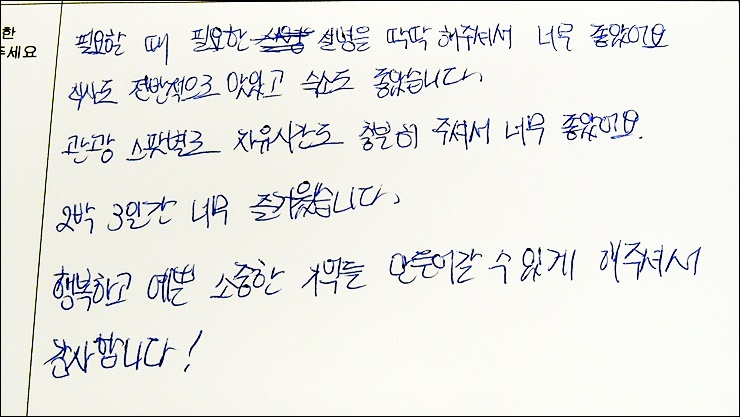 한
주세요
필요할 때 필요한 설명을 딱딱 해주셔서 너무 좋았어요
식사도 전반적으로 맛있고 숙소도 좋았습니다.
관광 스팟별로 자유시간도 충분히 주셔서 너무 좋았어요.
2박 3일간 너무 즐거웠습니다.
행복하고 예쁜 소중한 기억들 만들어갈 수 있게 해주셔서
감사합니다!